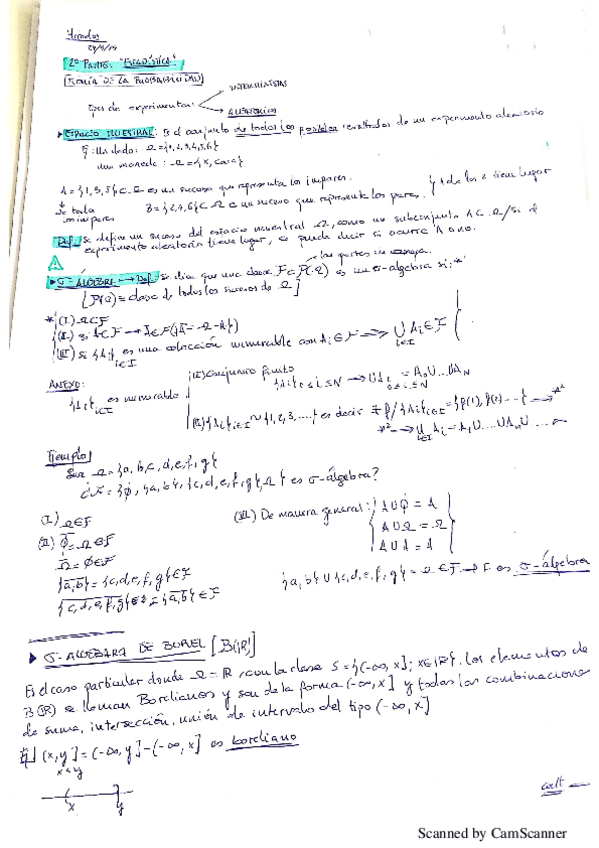 2ª PARTE: "ESTADÍSTICA"
TEORÍA DE LA PROBABILIDAD
DETERMINISTAS
Tipos de experimentos
ALEATORIOS
▸ ESPACIO MUESTRAL: Es el conjunto de todos los posibles resultados de un experimento aleatorio
Ej: Un dado: Ω={1,2,3,4,5,6}
Una moneda: Ω={x, cara}
A={1,3,5}⊂Ω es un suceso que representa los impares.
B={2,4,6}⊂Ω es un suceso que representa los pares.
Def: Se define un suceso del espacio muestral Ω, como un subconjunto A⊂Ω/si el
experimento aleatorio tiene lugar, se puede decir si ocurre A o no.
▸ σ-ALGEBRA → Def: Se dice que una clase F⊂P(Ω) es un σ-álgebra si:*
[P(Ω)=clase de todos los sucesos de Ω]
*(I) Ω∈F
(II) si A∈F → Ā∈F (Ā=Ω-A)
(III) si {Ai}i∈I es una colección numerable con Ai∈F ⇒ ∪Ai∈F
i∈I
ANEXO:
{Ai}i∈I es numerable
(I) Conjunto finito
{Ai}0≤i≤N → ∪Ai = A0∪...∪AN
0≤i≤N
(II) {Ai}i∈I ~ {1,2,3,....} es decir
Ejemplo
Sea Ω={a,b,c,d,e,f,g}
¿F={∅,{a,b},{c,d,e,f,g},Ω} es σ-álgebra?
(I) Ω∈F
(II) ∅̄=Ω∈F
Ω̄=∅∈F
{a,b}={c,d,e,f,g}∈F
{c,d,e,f,g}={a,b}∈F
(III) De manera general:
A∪∅=A
A∪Ω=Ω
A∪A=A
{a,b}∪{c,d,e,f,g}=Ω∈F → F es σ-álgebra
▸ σ-ALGEBRA DE BOREL [B(ℝ)]
Es el caso particular donde Ω=ℝ con la clase S={(-∞,x]; x∈ℝ}. Los elementos de
B(ℝ) se llaman Borelianos y son de la forma (-∞,x] y todas las combinaciones
de suma, intersección, unión de intervalos del tipo (-∞,x]
Ej (x,y]=(-∞,y]-(-∞,x] es boreliano
x<y
x y
Scanned by CamScanner